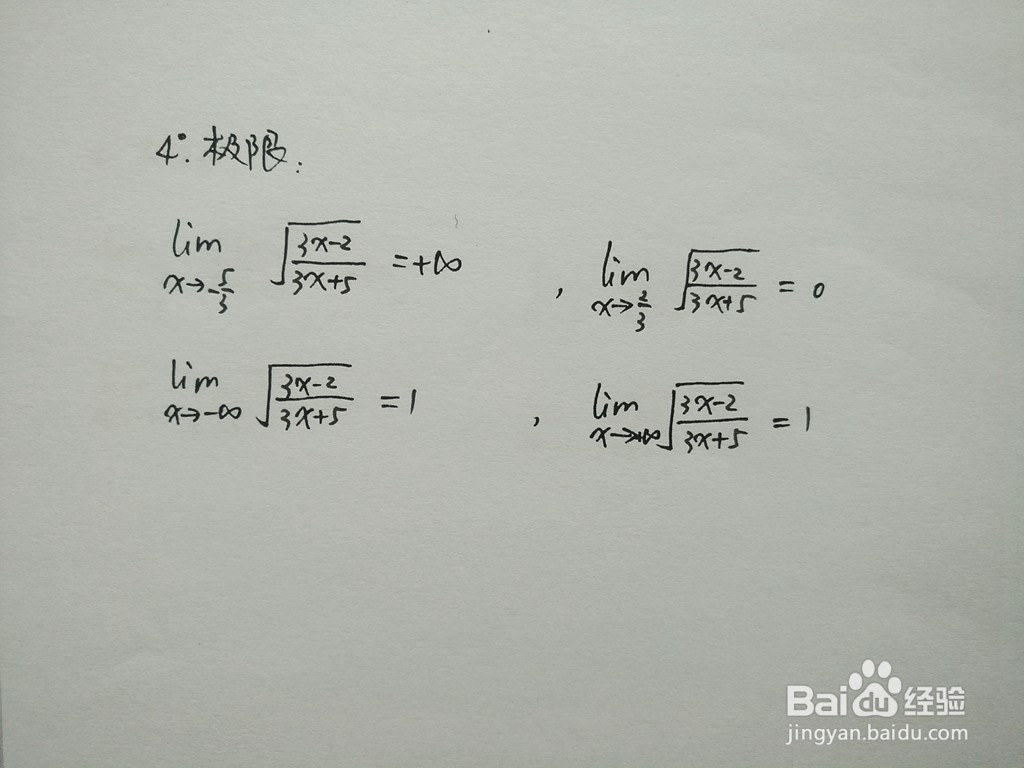 4°. 极限:
lim x→-5/3 √((3x-2)/(3x+5)) = +∞ , lim x→2/3 √((3x-2)/(3x+5)) = 0
lim x→-∞ √((3x-2)/(3x+5)) = 1 , lim x→+∞ √((3x-2)/(3x+5)) = 1
Bai du 经验
jingyan.baidu.com